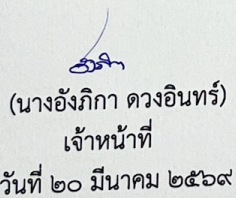 (นางอังภิกา ดวงอินทร์)
เจ้าหน้าที่
วันที่ ๒๐ มีนาคม ๒๕๖๙